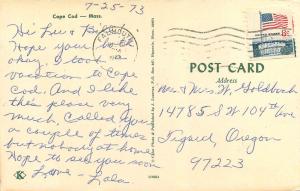 7-25-73
Cape Cod - Mass.
Hi Lee & Bob
Hope your both
okay. I took
vacation to Cape
Cod. And I like
this place very
much. Called you
a couple of times
but nobody at home.
Hope to see you soon
Love - Lola
FALMOUTH
POST CARD
Address
Mr & Mrs W. Goldbach
14785 SW 104th Ave
Tigard, Oregon
97223